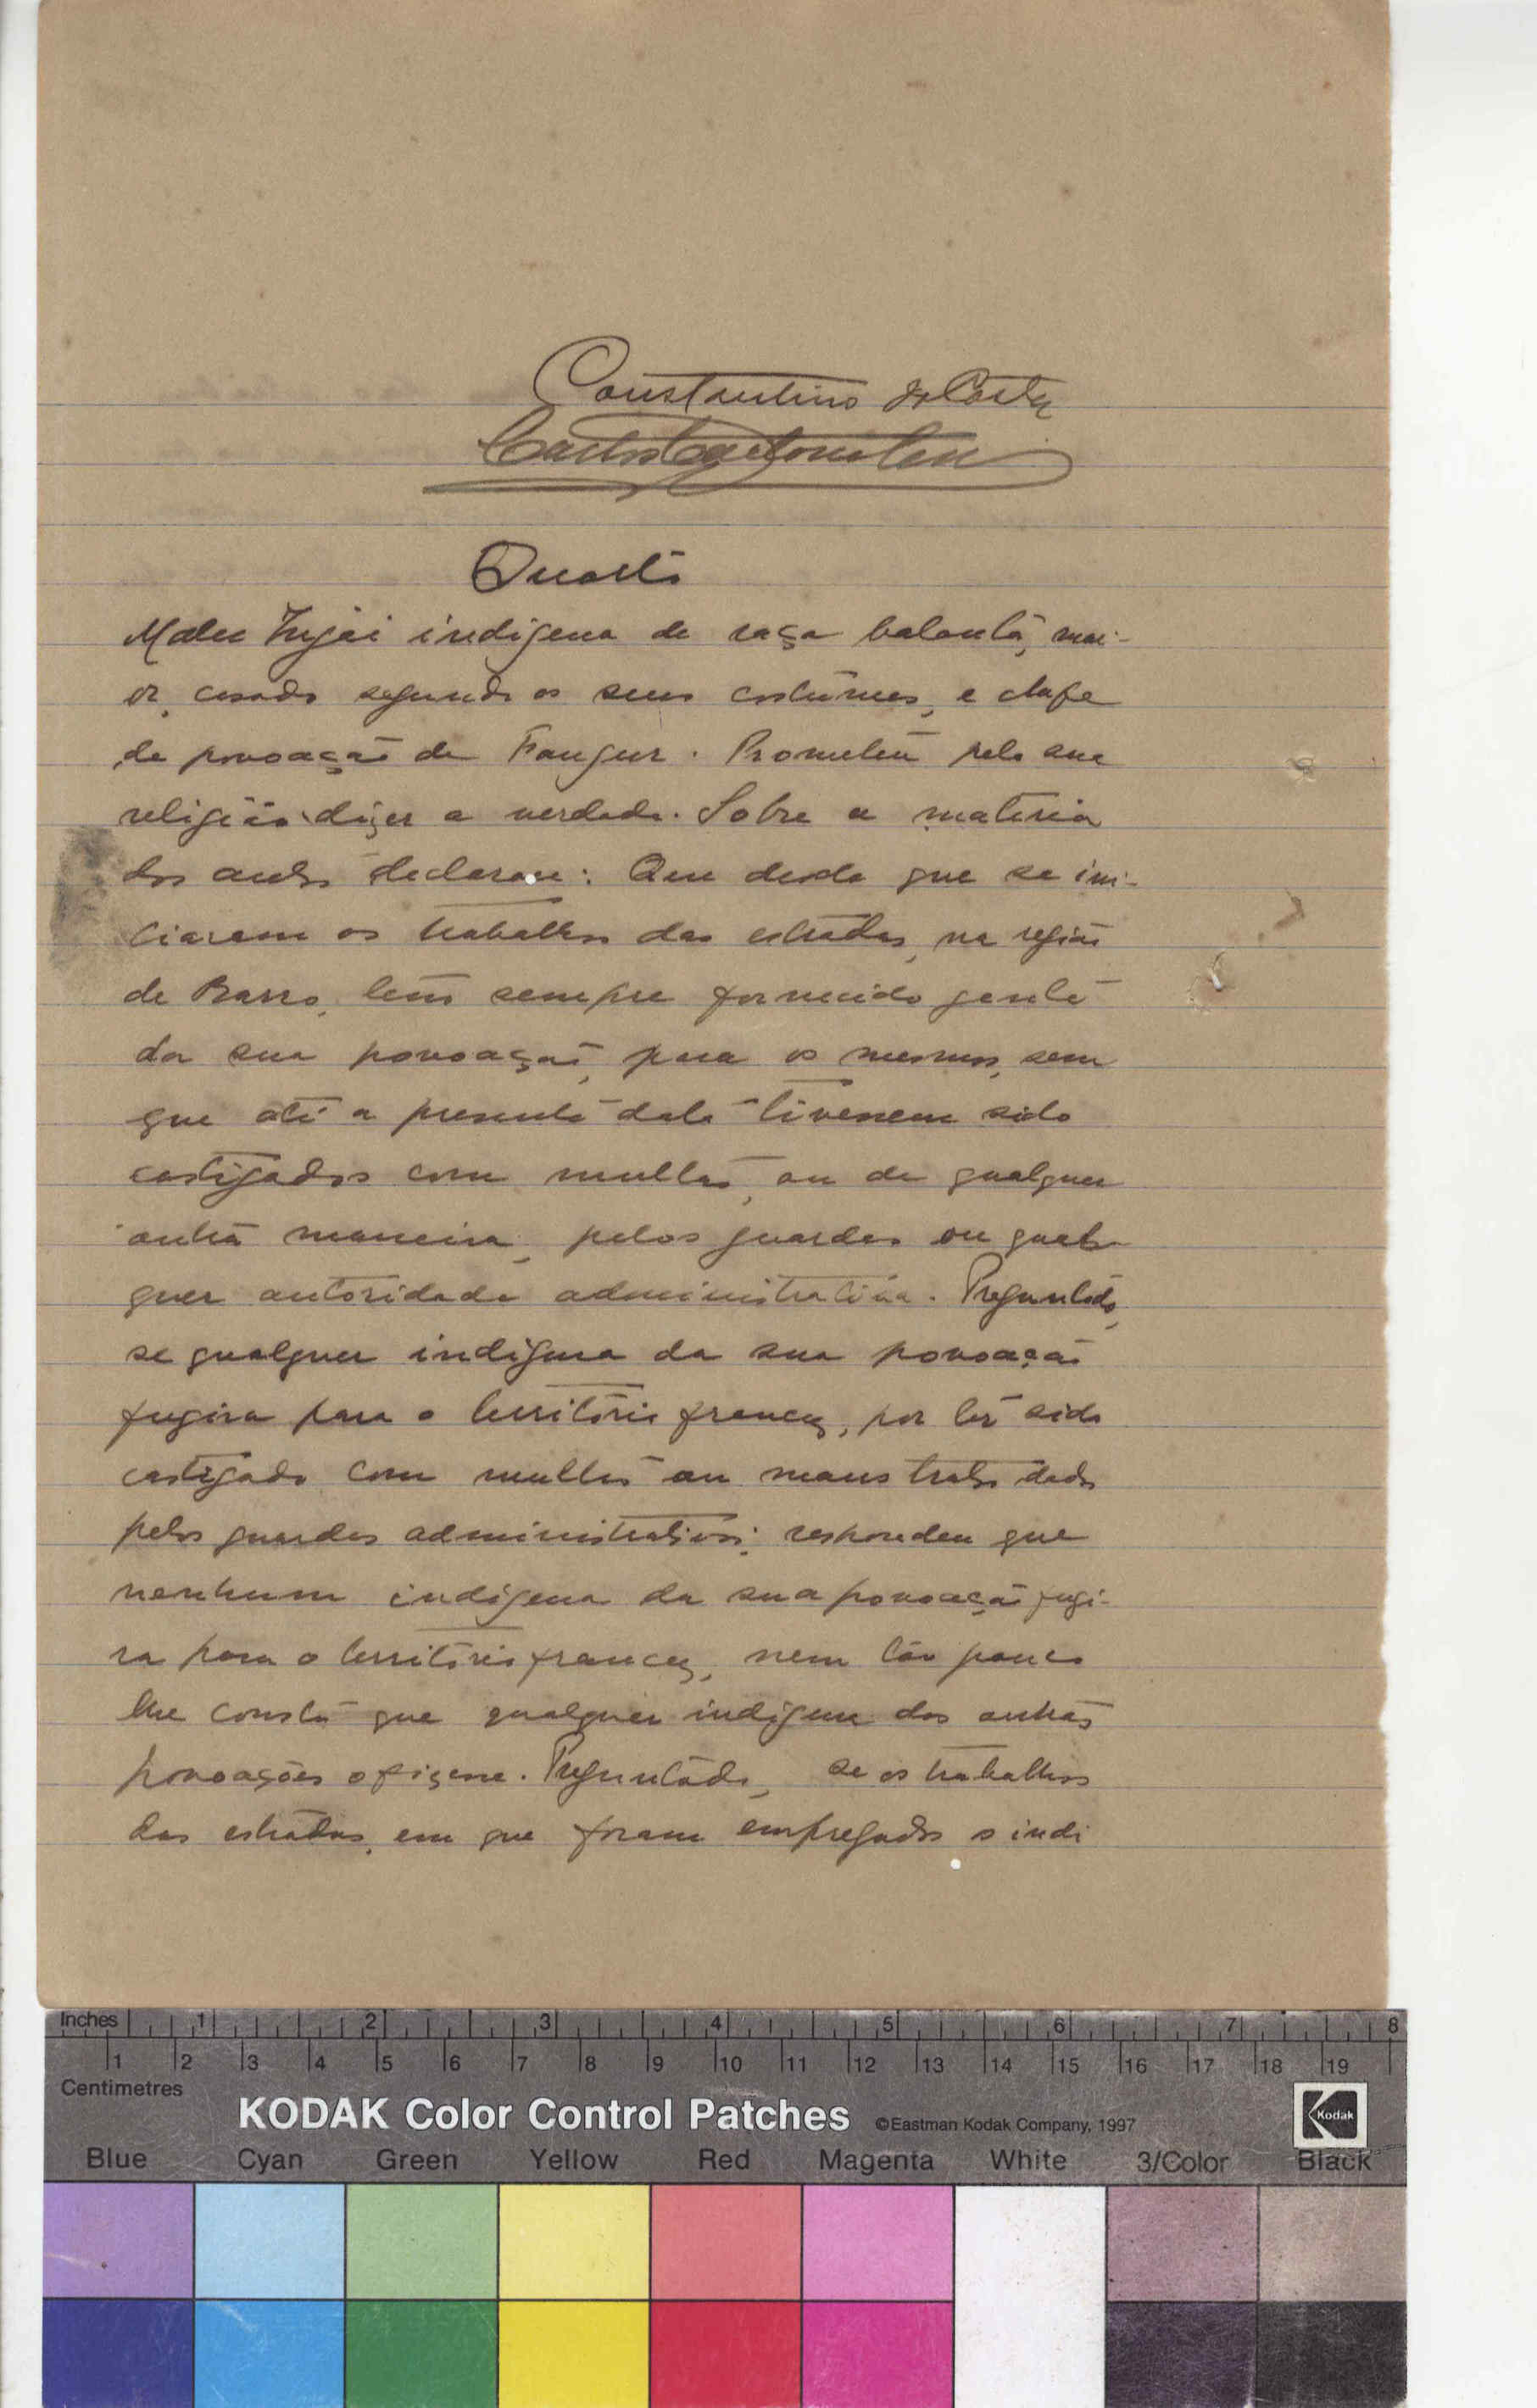 Constantino da Costa
Quarta
Malu Injai indigena de raça balanta, mai-
or, casado segundo os seus costumes, e chefe
da povoação de Fangur. Prometeu pela sua
religião dizer a verdade. Sobre a materia
dos autos declarou: Que desde que se ini-
ciaram os trabalhos das estradas, na região
de Barro, tem sempre fornecido gente
da sua povoação, para os mesmos, sem
que até a presente data tivessem sido
castigados com multas, ou de qualquer
outra maneira, pelos guardas ou qual-
quer autoridade administrativa. Preguntado,
se qualquer indigena da sua povoação
fugira para o território francez, por ter sido
castigado com multas ou maus tratos dados
pelos guardas administrativos; respondeu que
nenhum indigena da sua povoação fugi-
ra para o território francez, nem tão pouco
lhe consta que qualquer indigena das outras
povoações o fizesse. Preguntado, se os trabalhos
das estradas, em que foram empregados o indi
Inches 1 2 3 4 5 6 7 8
1 2 3 4 5 6 7 8 9 10 11 12 13 14 15 16 17 18 19
Centimetres
KODAK Color Control Patches ©Eastman Kodak Company, 1997 Kodak
Blue Cyan Green Yellow Red Magenta White 3/Color Black